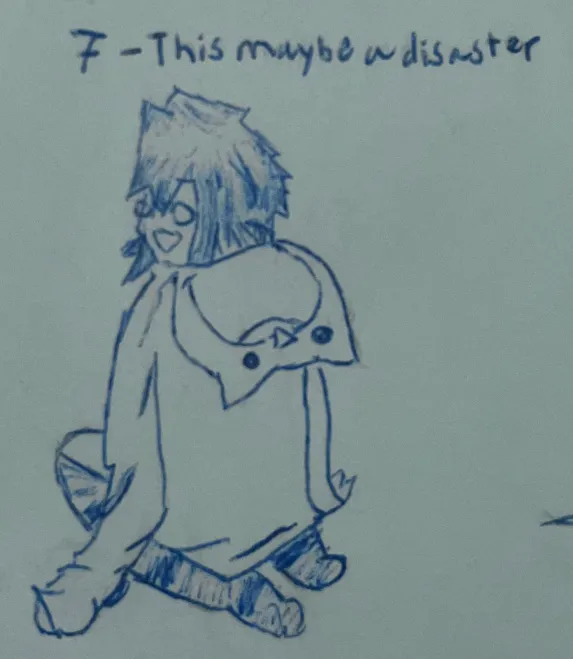 7 - This maybe a disaster